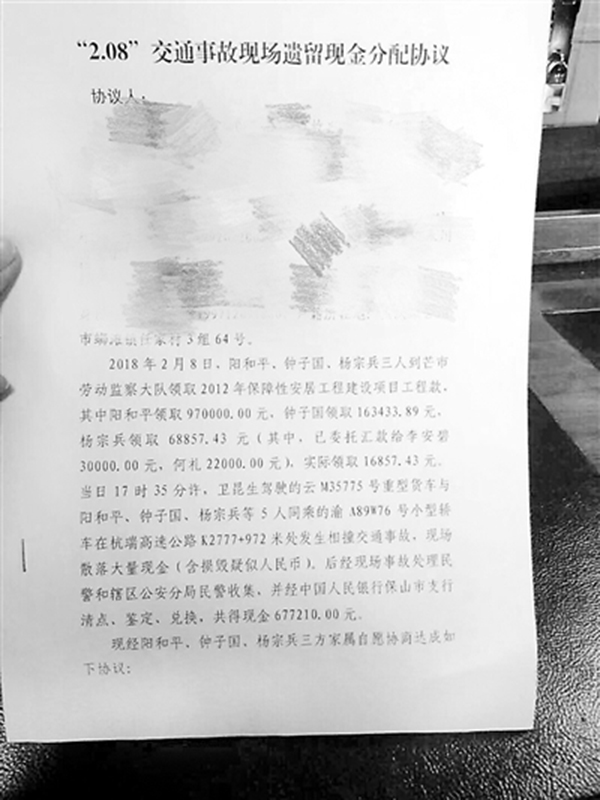 “2.08”交通事故现场遗留现金分配协议
协议人：
市 3组64号。
2018年2月8日，阳和平、钟子国、杨宗兵三人到芒市
劳动监察大队领取2012年保障性安居工程建设项目工程款，
其中阳和平领取970000.00元，钟子国领取163433.89元，
杨宗兵领取68857.43元（其中，已委托汇款给李安碧
30000.00元，何札22000.00元），实际领取16857.43元。
当日17时35分许，卫昆生驾驶的云M35775号重型货车与
阳和平、钟子国、杨宗兵等5人同乘的渝A89W76号小型轿
车在杭瑞高速公路K2777+972米处发生相撞交通事故，现场
散落大量现金（含损毁疑似人民币），后经现场事故处理民
警和辖区公安分局民警收集，并经中国人民银行保山市支行
清点、鉴定、兑换，共得现金677210.00元。
现经阳和平、钟子国、杨宗兵三方家属自愿协商达成如
下协议：